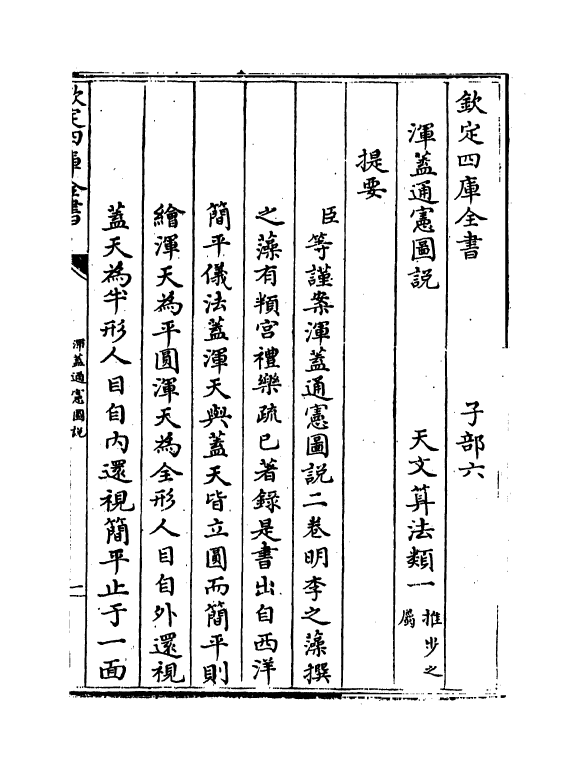 欽定四庫全書　子部六
渾葢通憲圖說　天文算法類一 推步之屬
提要
臣等謹案渾葢通憲圖說二卷明李之藻撰
之藻有頖宮禮樂疏已著錄是書出自西洋
簡平儀法葢渾天與葢天皆立圓而簡平則
繪渾天為平圓渾天為全形人目自外還視
葢天為半形人目自內還視簡平止于一面
欽定四庫全書
渾葢通憲圖說